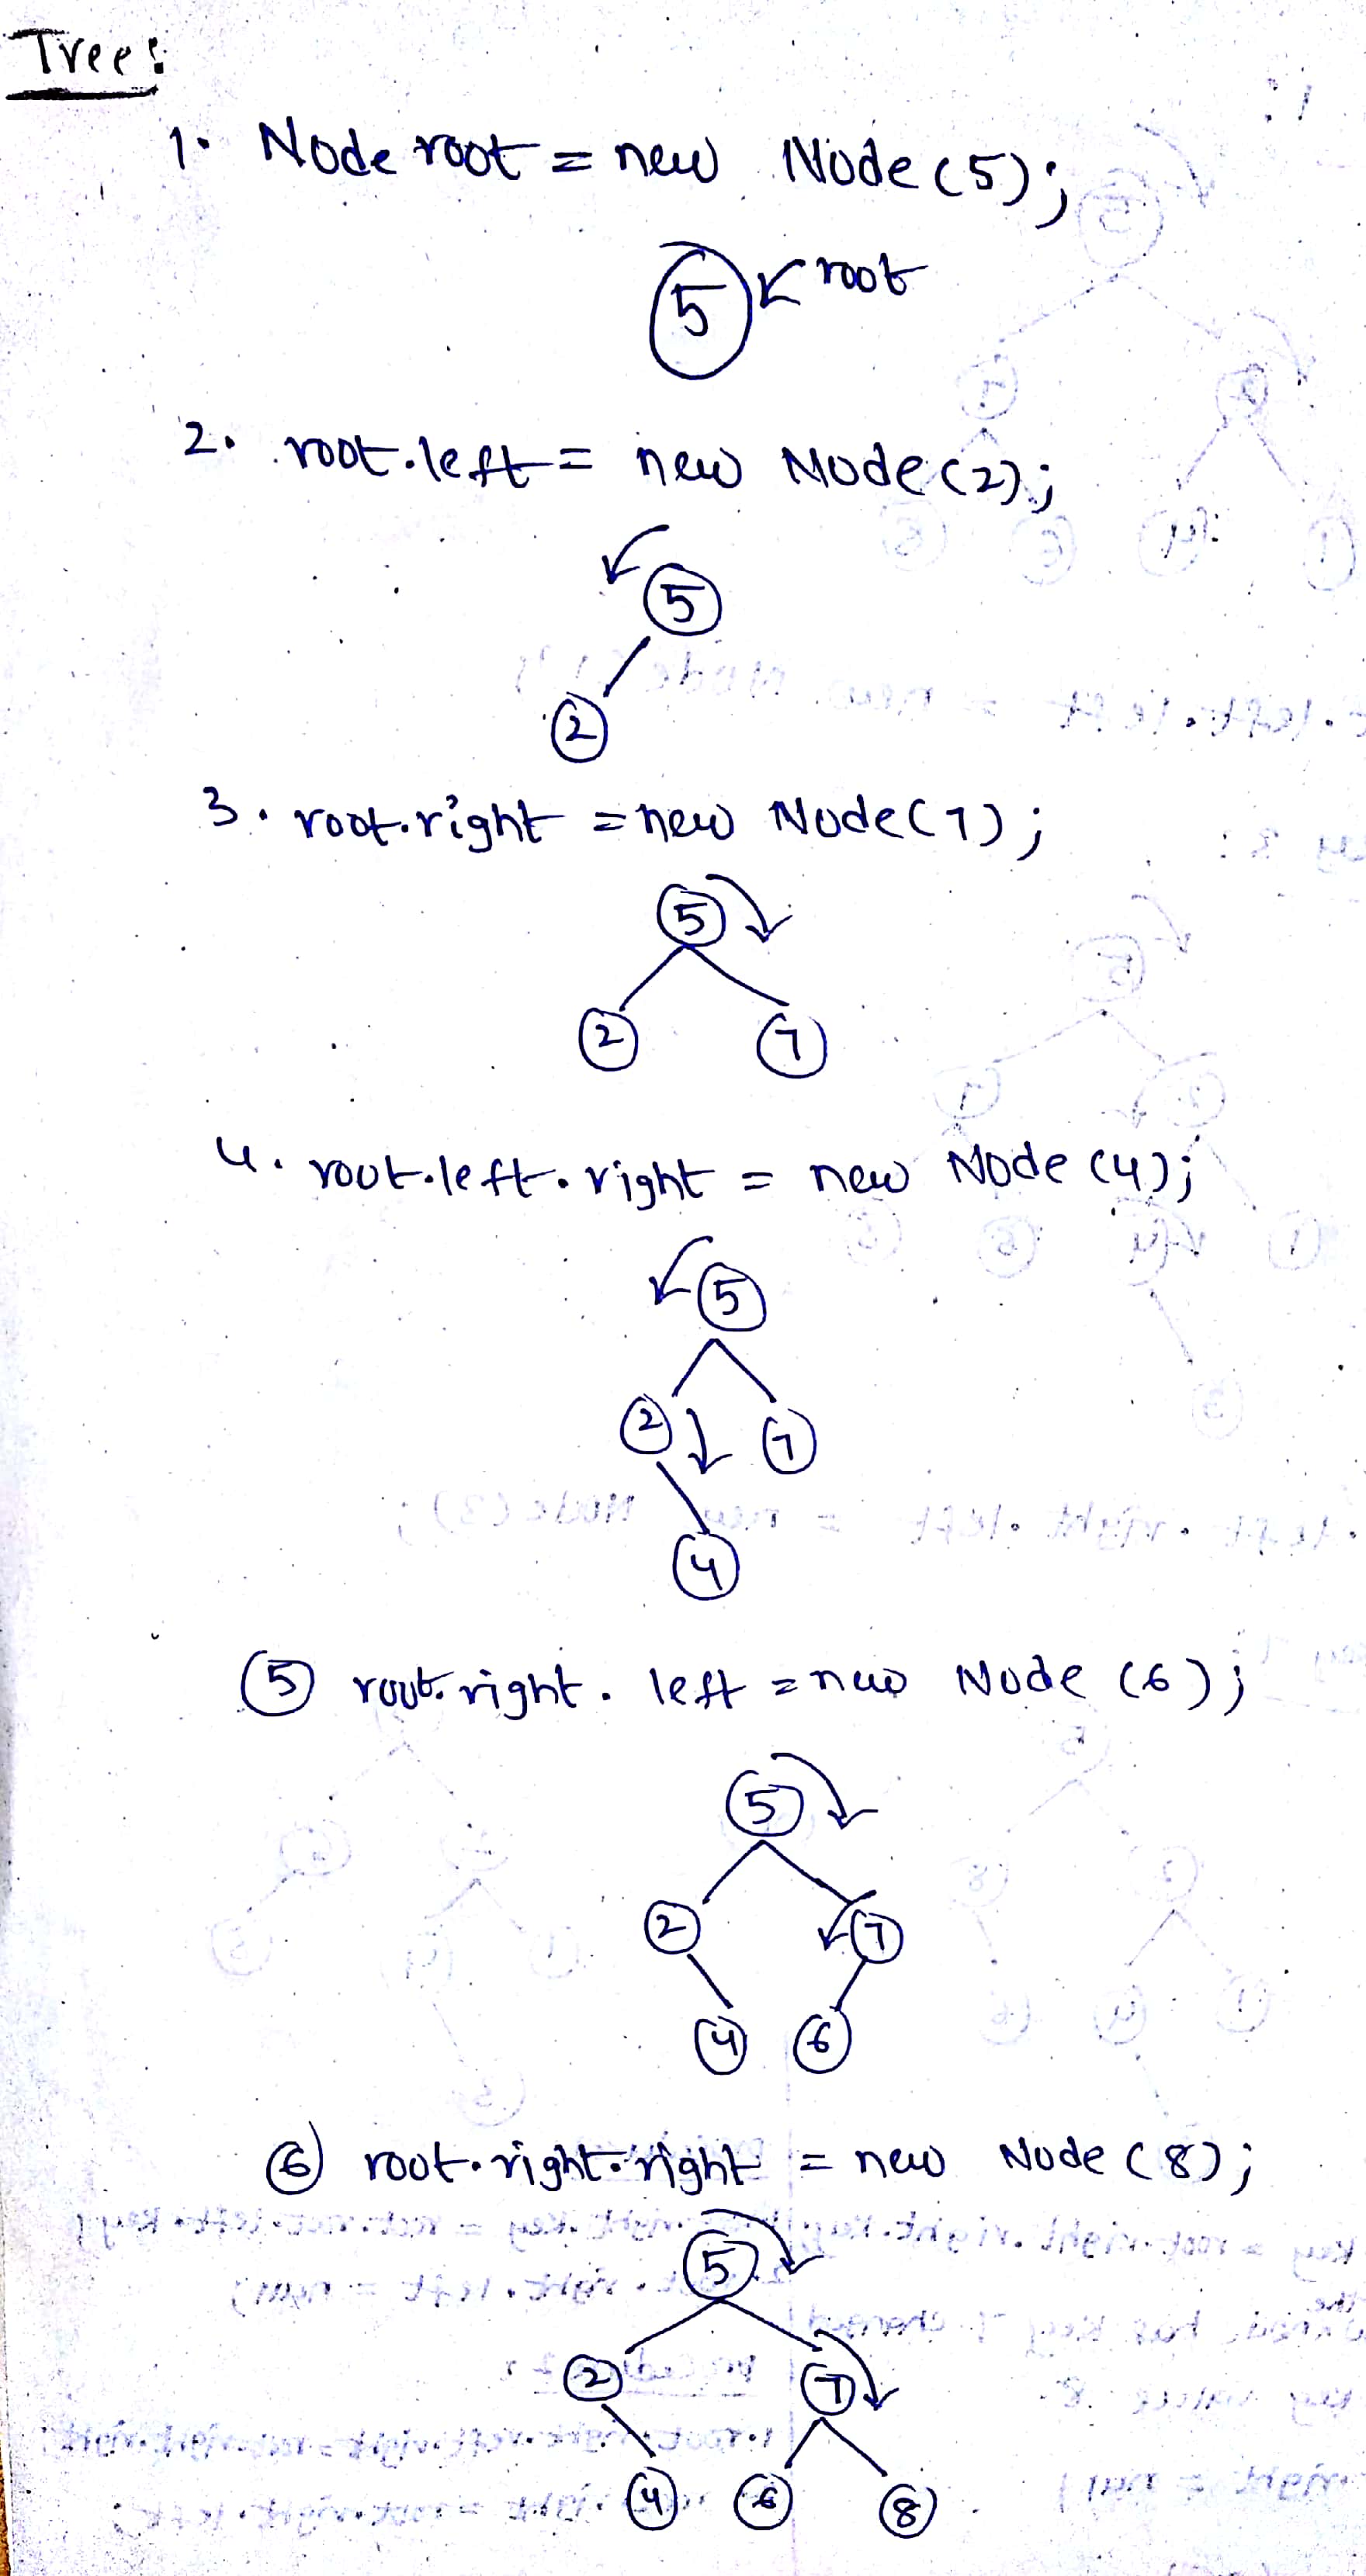 Tree:
1. Node root = new Node (5);
5 root
2. root.left = new Node (2);
5
2
3. root.right = new Node (7);
5
2 7
4. root.left.right = new Node (4);
5
2 7
4
5 root.right. left = new Node (6);
5
2 7
4 6
6 root.right.right = new Node (8);
5
2 7
4 6 8